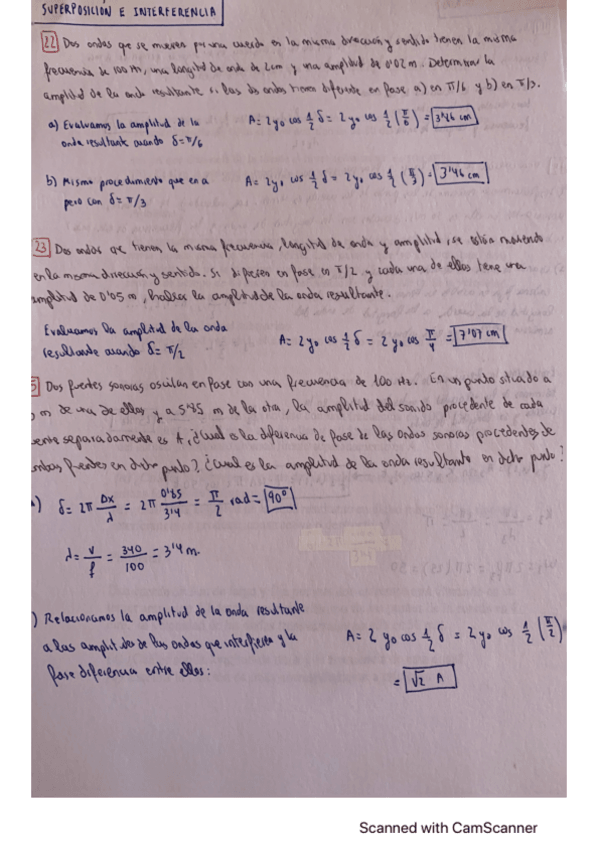 SUPERPOSICIÓN E INTERFERENCIA
22 Dos ondas que se mueven por una cuerda en la misma dirección y sentido tienen la misma
frecuencia de 100 Hz, una longitud de onda de 2cm y una amplitud de 0'02 m. Determinar la
amplitud de la onda resultante si las dos ondas tienen diferente en fase a) en π/6 y b) en π/3.
a) Evaluamos la amplitud de la
onda resultante cuando δ=π/6
A= 2 y₀ cos 1/2 δ = 2 y₀ cos 1/2 (π/6) = 3'46 cm
b) Mismo procedimiento que en a
pero con δ= π/3
A= 2 y₀ cos 1/2 δ = 2 y₀ cos 1/2 (π/3) = 3'46 cm
23 Dos ondas que tienen la misma frecuencia, longitud de onda y amplitud, se están moviendo
en la misma dirección y sentido. Si difieren en fase en π/2 y cada una de ellas tene una
amplitud de 0'05 m, hallar la amplitud de la onda resultante.
Evaluamos la amplitud de la onda
resultante cuando δ= π/2
A= 2 y₀ cos 1/2 δ = 2 y₀ cos π/4 = 7'07 cm
5 Dos fuentes sonoras oscilan en fase con una frecuencia de 100 Hz. En un punto situado a
m de una de ellas y a 5'85 m de la otra, la amplitud del sonido procedente de cada
ente separadamente es A, ¿Cual es la diferencia de fase de las ondas sonoras procedentes de
mbas fuentes en dicho punto? ¿Cual es la amplitud de la onda resultante en dicho punto?
) δ= 2π Δx/λ = 2π 0'85/3'4 = π/2 rad = 90°
λ= v/f = 340/100 = 3'4 m.
) Relacionamos la amplitud de la onda resultante
a las amplitudes de las ondas que interfieren y la
fase diferencia entre ellas:
A= 2 y₀ cos 1/2 δ = 2 y₀ cos 1/2 (π/2)
= √2 A
Scanned with CamScanner